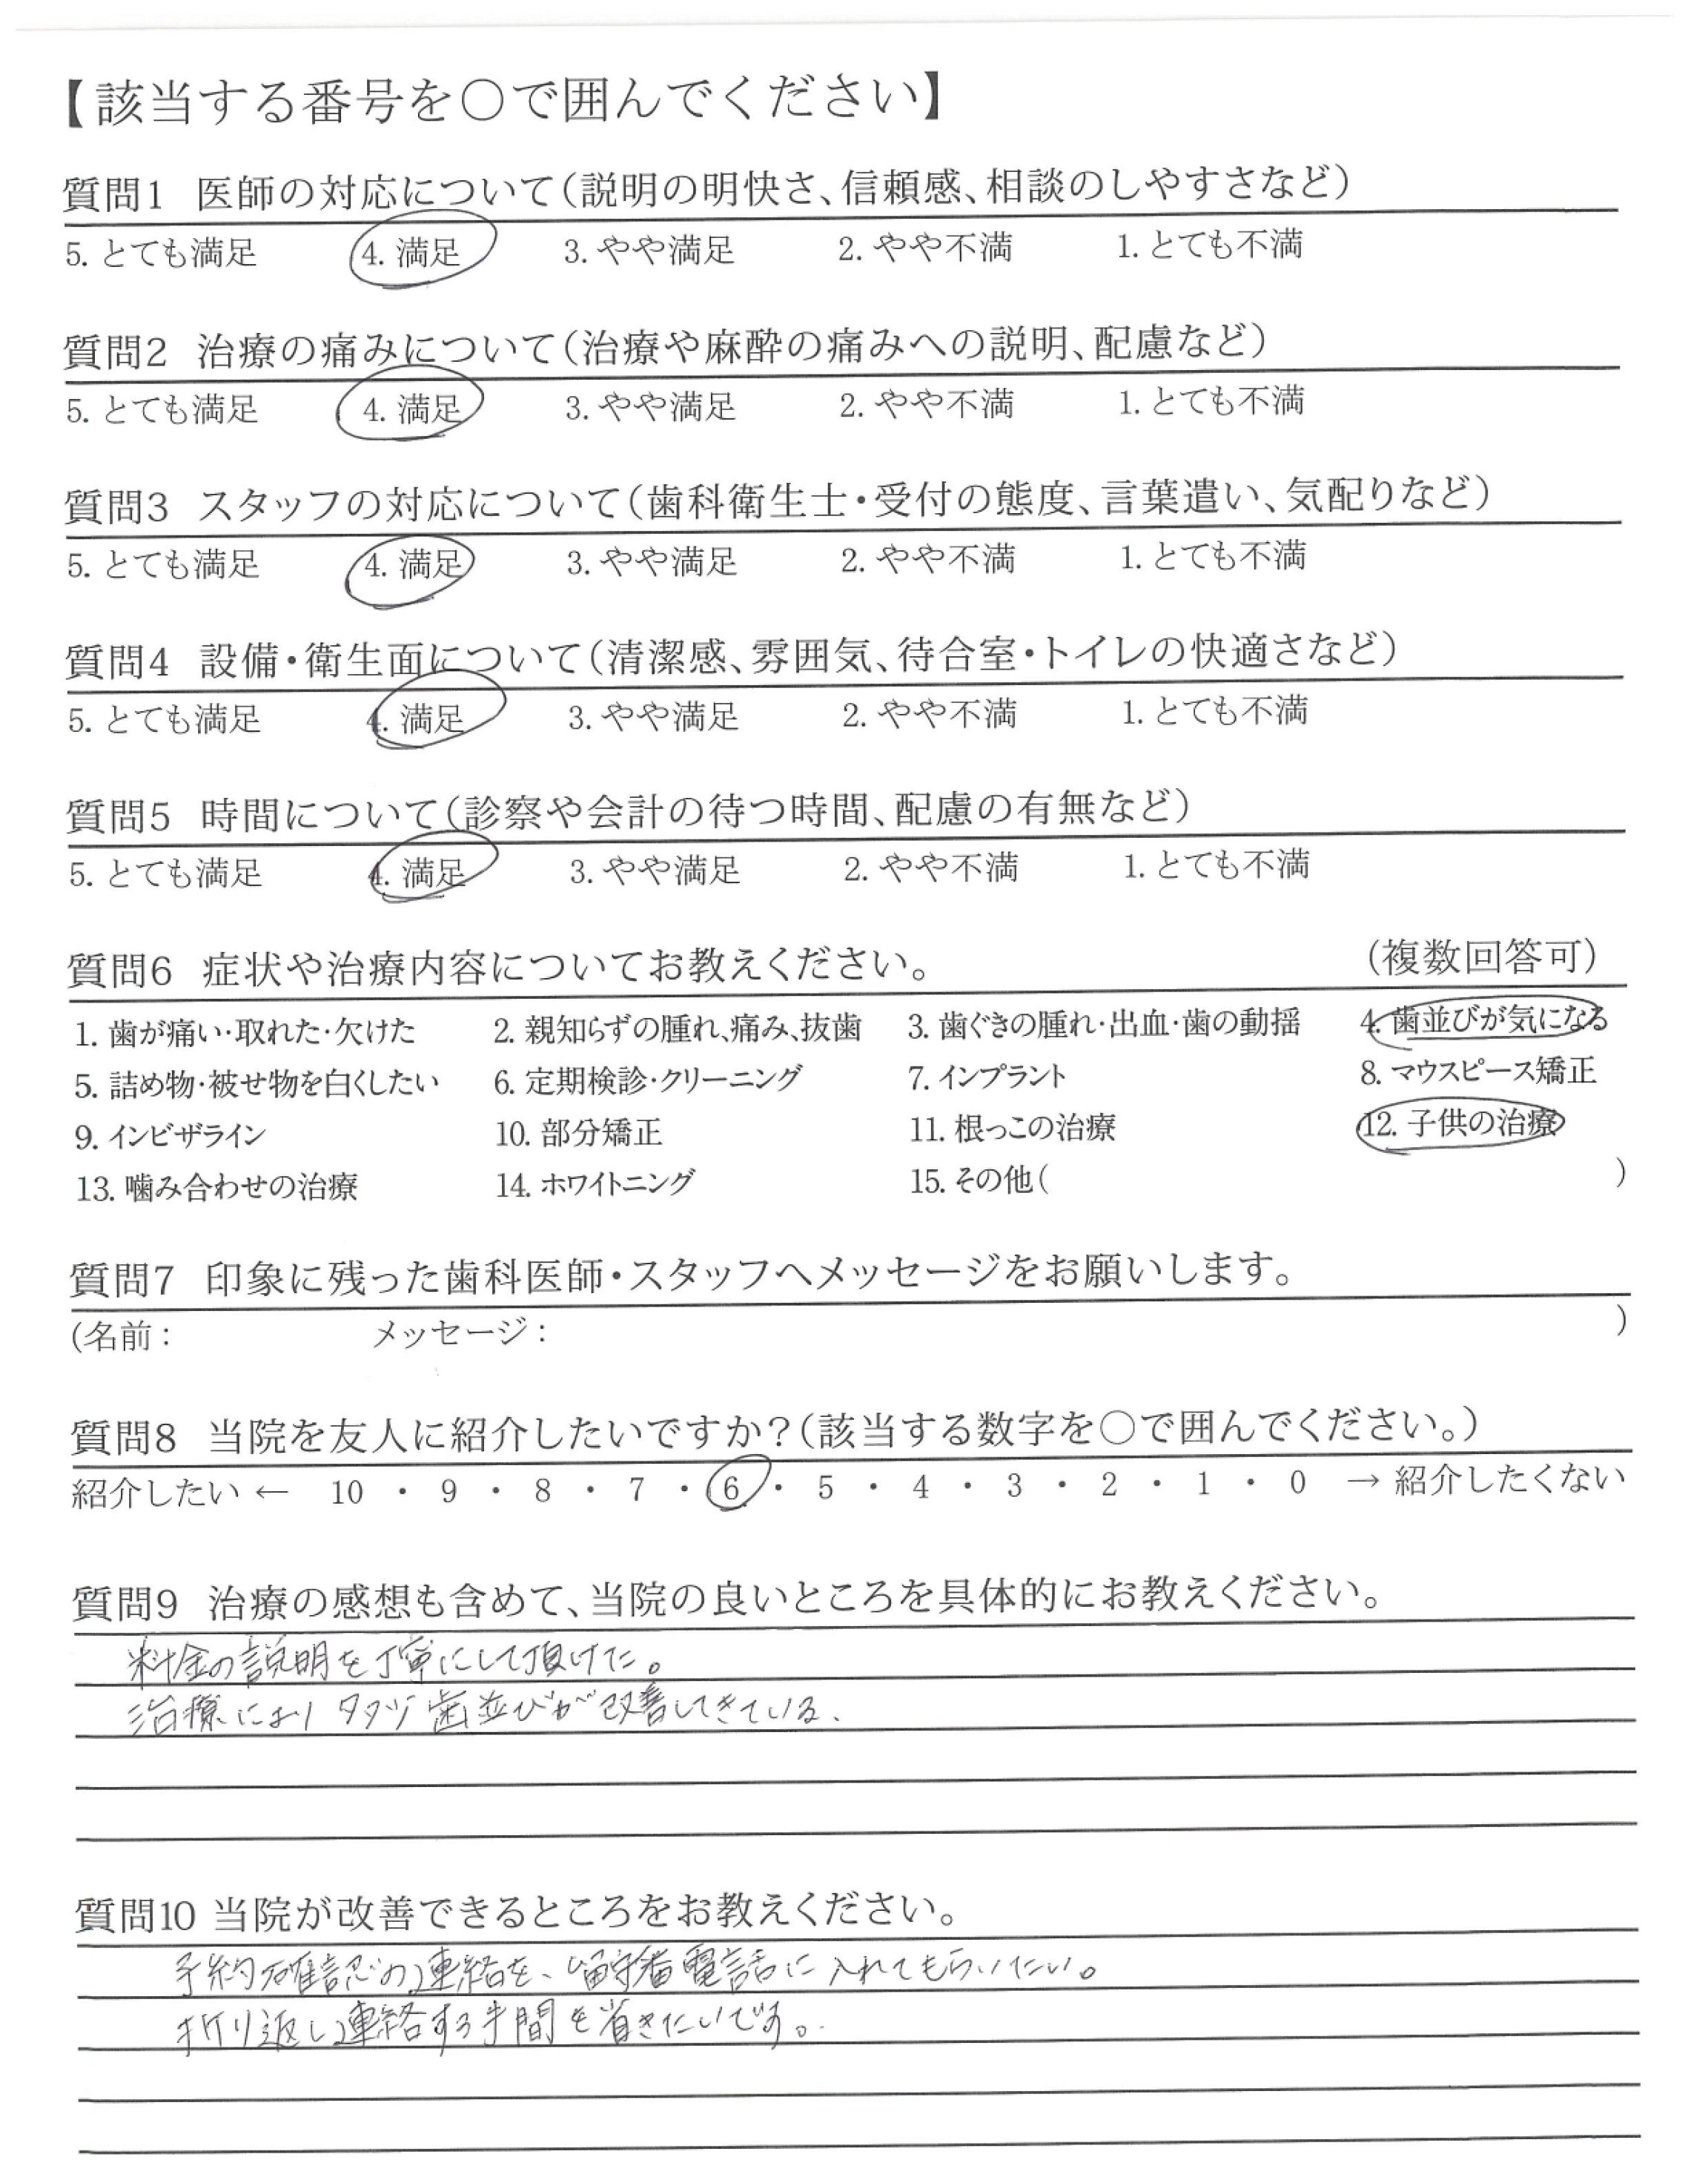 【該当する番号を○で囲んでください】
質問1 医師の対応について(説明の明快さ、信頼感、相談のしやすさなど)
5. とても満足 4. 満足 3. やや満足 2. やや不満 1. とても不満
質問2 治療の痛みについて(治療や麻酔の痛みへの説明、配慮など)
5. とても満足 4. 満足 3. やや満足 2. やや不満 1. とても不満
質問3 スタッフの対応について(歯科衛生士・受付の態度、言葉遣い、気配りなど)
5. とても満足 4. 満足 3. やや満足 2. やや不満 1. とても不満
質問4 設備・衛生面について(清潔感、雰囲気、待合室・トイレの快適さなど)
5. とても満足 4. 満足 3. やや満足 2. やや不満 1. とても不満
質問5 時間について(診察や会計の待つ時間、配慮の有無など)
5. とても満足 4. 満足 3. やや満足 2. やや不満 1. とても不満
質問6 症状や治療内容についてお教えください。 (複数回答可)
1. 歯が痛い・取れた・欠けた 2. 親知らずの腫れ、痛み、抜歯 3. 歯ぐきの腫れ・出血・歯の動揺 4. 歯並びが気になる
5. 詰め物・被せ物を白くしたい 6. 定期検診・クリーニング 7. インプラント 8. マウスピース矯正
9. インビザライン 10. 部分矯正 11. 根っこの治療 12. 子供の治療
13. 噛み合わせの治療 14. ホワイトニング 15. その他( )
質問7 印象に残った歯科医師・スタッフへメッセージをお願いします。
(名前： メッセージ： )
質問8 当院を友人に紹介したいですか？(該当する数字を○で囲んでください。)
紹介したい ← 10 ・ 9 ・ 8 ・ 7 ・ 6 ・ 5 ・ 4 ・ 3 ・ 2 ・ 1 ・ 0 → 紹介したくない
質問9 治療の感想も含めて、当院の良いところを具体的にお教えください。
料金の説明を丁寧にして頂けた。
治療により少しずつ歯並びが改善してきている。
質問10 当院が改善できるところをお教えください。
予約確認の連絡を、留守番電話に入れてもらいたい。
折り返し連絡する手間を省きたいです。